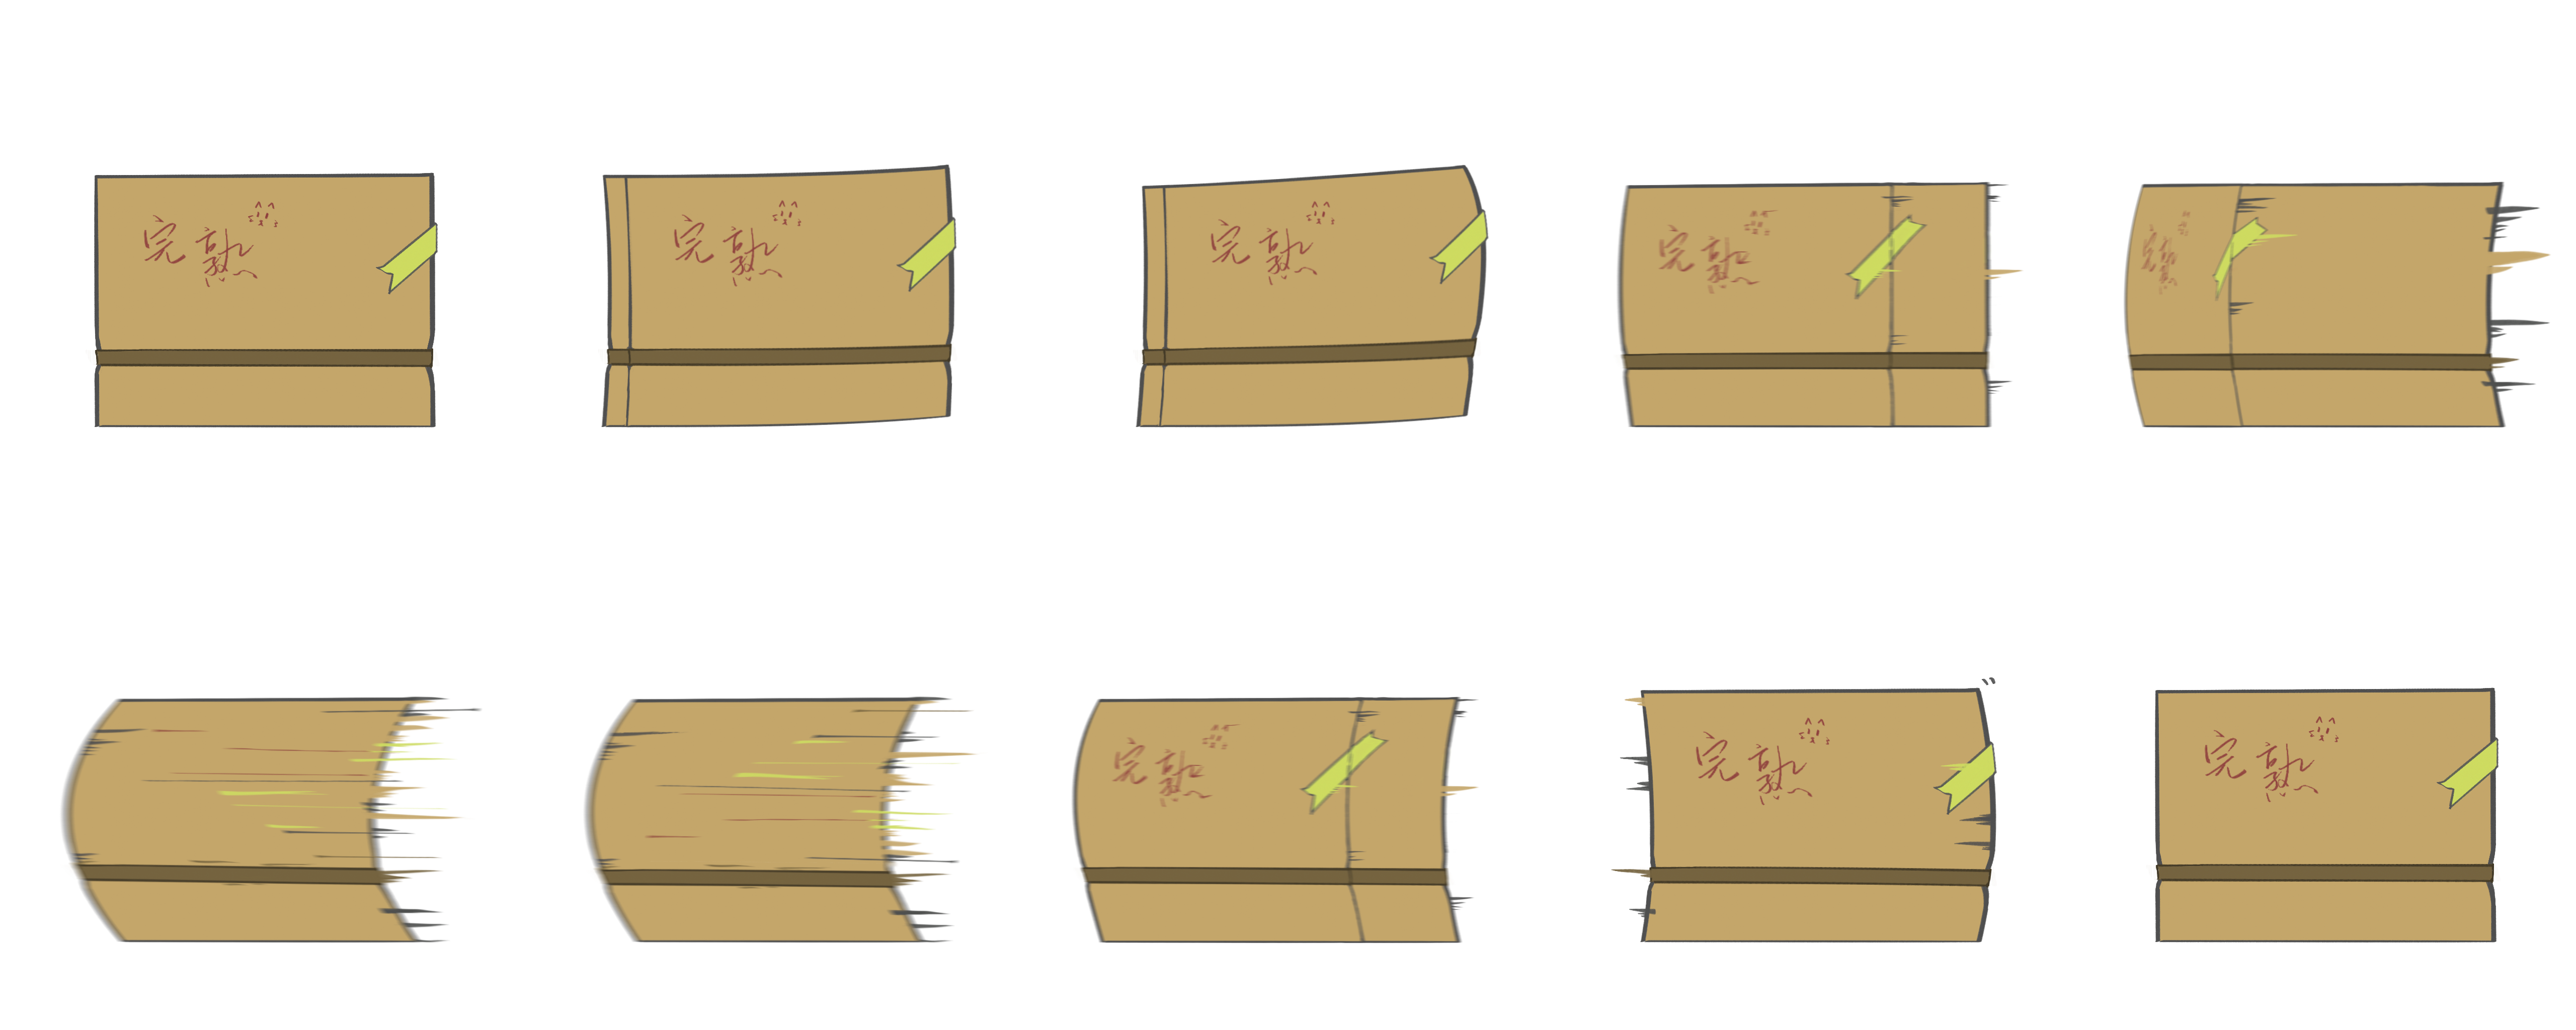 完熟
完熟
完熟
完熟
完熟
完熟
完熟